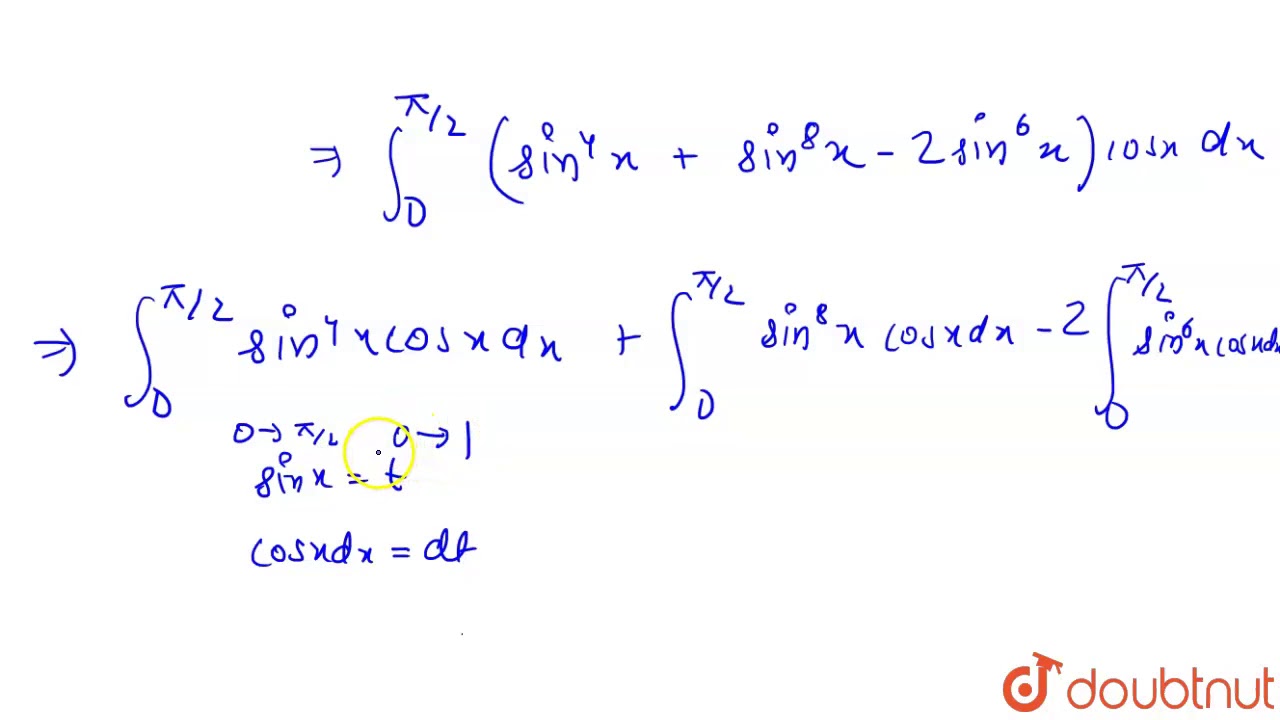 ⇒ ∫₀^π/2 (sin⁴x + sin⁸x - 2sin⁶x) cosx dx
⇒ ∫₀^π/2 sin⁴x cosx dx + ∫₀^π/2 sin⁸x cosxdx - 2 ∫₀^π/2 sin⁶x cosxdx
0→π/2 0→1
sinx = t
cosxdx = dt
doubtnut